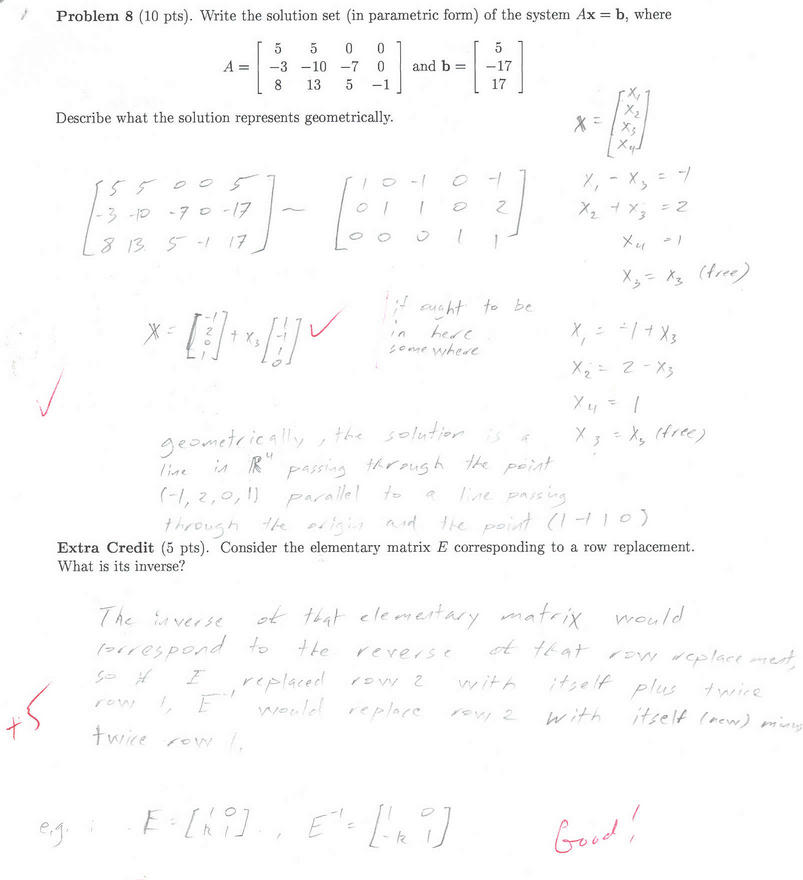 Problem 8 (10 pts). Write the solution set (in parametric form) of the system Ax = b, where
A = [ 5 5 0 0 ; -3 -10 -7 0 ; 8 13 5 -1 ] and b = [ 5 ; -17 ; 17 ]
Describe what the solution represents geometrically.
X = [ X₁ ; X₂ ; X₃ ; X₄ ]
[ 5 5 0 0 5 ; -3 -10 -7 0 -17 ; 8 13 5 -1 17 ] ~ [ 1 0 -1 0 -1 ; 0 1 1 0 2 ; 0 0 0 1 1 ]
X₁ - X₃ = -1
X₂ + X₃ = 2
X₄ = 1
X₃ = X₃ (free)
X = [ -1 ; 2 ; 0 ; 1 ] + X₃ [ 1 ; -1 ; 1 ; 0 ] ✓
it ought to be
in here
somewhere
X₁ = -1 + X₃
X₂ = 2 - X₃
X₄ = 1
X₃ = X₃ (free)
✓
geometrically, the solution is a
line in ℝ⁴ passing through the point
(-1, 2, 0, 1) parallel to a line passing
through the origin and the point (1 -1 1 0)
Extra Credit (5 pts). Consider the elementary matrix E corresponding to a row replacement.
What is its inverse?
The inverse of that elementary matrix would
correspond to the reverse of that row replacement,
so if I replaced row 2 with itself plus twice
row 1, E⁻¹ would replace row 2 with itself (new) minus
twice row 1.
+5
e.g. : E = [ 1 0 ; k 1 ], E⁻¹ = [ 1 0 ; -k 1 ]
Good!